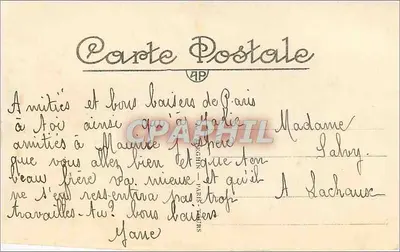 Carte Postale
AP
Amitiés et bons baisers de Paris
à toi ainsi qu'à
Madame
amitiés à Maurice
que vous allez bien et que ton
beau frère va mieux et qu'il
A Lachaux
ne s'en ressentira pas trop
travailles-tu? bons baisers
Jane
CPAPHIL